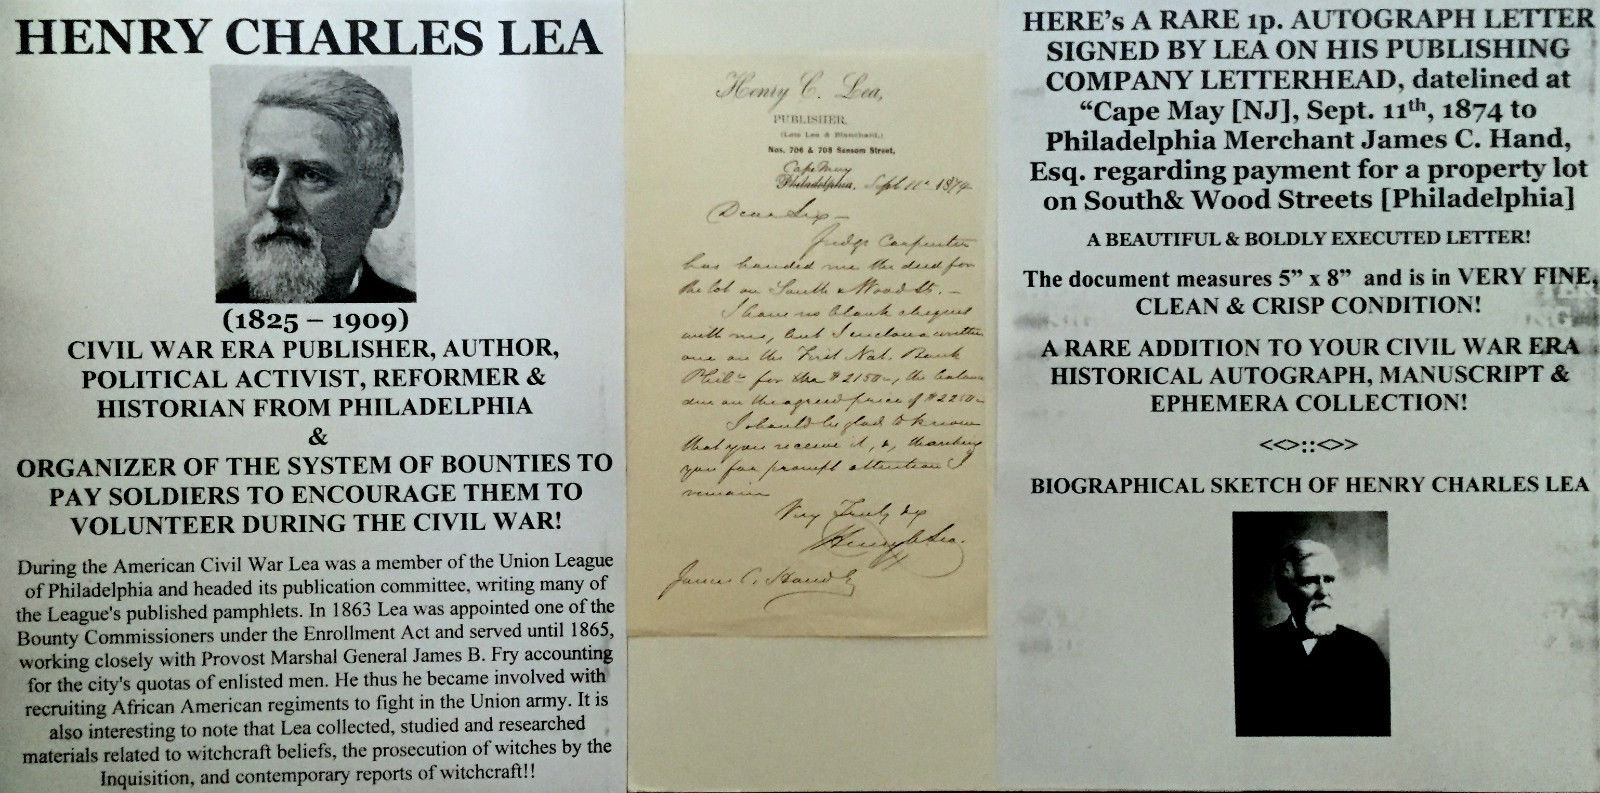 HENRY CHARLES LEA
(1825 – 1909)
CIVIL WAR ERA PUBLISHER, AUTHOR,
POLITICAL ACTIVIST, REFORMER &
HISTORIAN FROM PHILADELPHIA
&
ORGANIZER OF THE SYSTEM OF BOUNTIES TO
PAY SOLDIERS TO ENCOURAGE THEM TO
VOLUNTEER DURING THE CIVIL WAR!
During the American Civil War Lea was a member of the Union League
of Philadelphia and headed its publication committee, writing many of
the League's published pamphlets. In 1863 Lea was appointed one of the
Bounty Commissioners under the Enrollment Act and served until 1865,
working closely with Provost Marshal General James B. Fry accounting
for the city's quotas of enlisted men. He thus he became involved with
recruiting African American regiments to fight in the Union army. It is
also interesting to note that Lea collected, studied and researched
materials related to witchcraft beliefs, the prosecution of witches by the
Inquisition, and contemporary reports of witchcraft!!
Henry C. Lea,
PUBLISHER,
(Late Lea & Blanchard,)
Nos. 706 & 708 Sansom Street,
Cape May
Philadelphia, Sept 11th 1874
Dear Sir –
Judge Carpenter
has handed me the deed for
the lot on South & Wood Sts. –
I have no blank cheques
with me, but I enclose a written
one on the First Nat. Bank
Phila for $2150–, the balance
due on the agreed price of $2250–
I should be glad to know
that you receive it, &, thanking
you for prompt attention I
remain
Very Truly
Henry C Lea.
James C. Hand
HERE's A RARE 1p. AUTOGRAPH LETTER
SIGNED BY LEA ON HIS PUBLISHING
COMPANY LETTERHEAD, datelined at
“Cape May [NJ], Sept. 11th, 1874 to
Philadelphia Merchant James C. Hand,
Esq. regarding payment for a property lot
on South& Wood Streets [Philadelphia]
A BEAUTIFUL & BOLDLY EXECUTED LETTER!
The document measures 5” x 8” and is in VERY FINE,
CLEAN & CRISP CONDITION!
A RARE ADDITION TO YOUR CIVIL WAR ERA
HISTORICAL AUTOGRAPH, MANUSCRIPT &
EPHEMERA COLLECTION!
<<>::<>>
BIOGRAPHICAL SKETCH OF HENRY CHARLES LEA